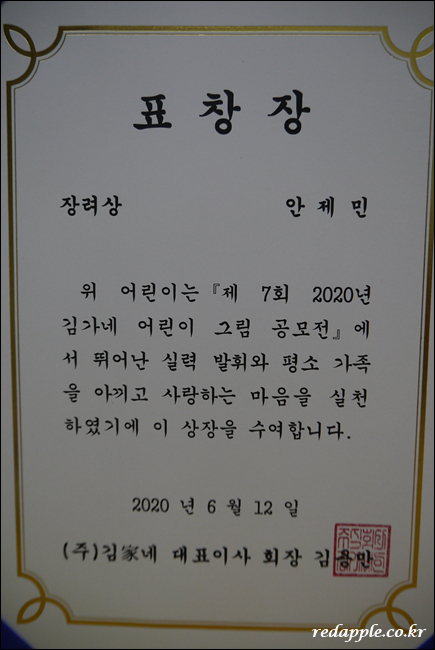 표 창 장
장려상 안 제 민
위 어린이는 『제 7회 2020년
김가네 어린이 그림 공모전』에
서 뛰어난 실력 발휘와 평소 가족
을 아끼고 사랑하는 마음을 실천
하였기에 이 상장을 수여합니다.
2020 년 6 월 12 일
(주)김家네 대표이사 회장 김용만
redapple.co.kr